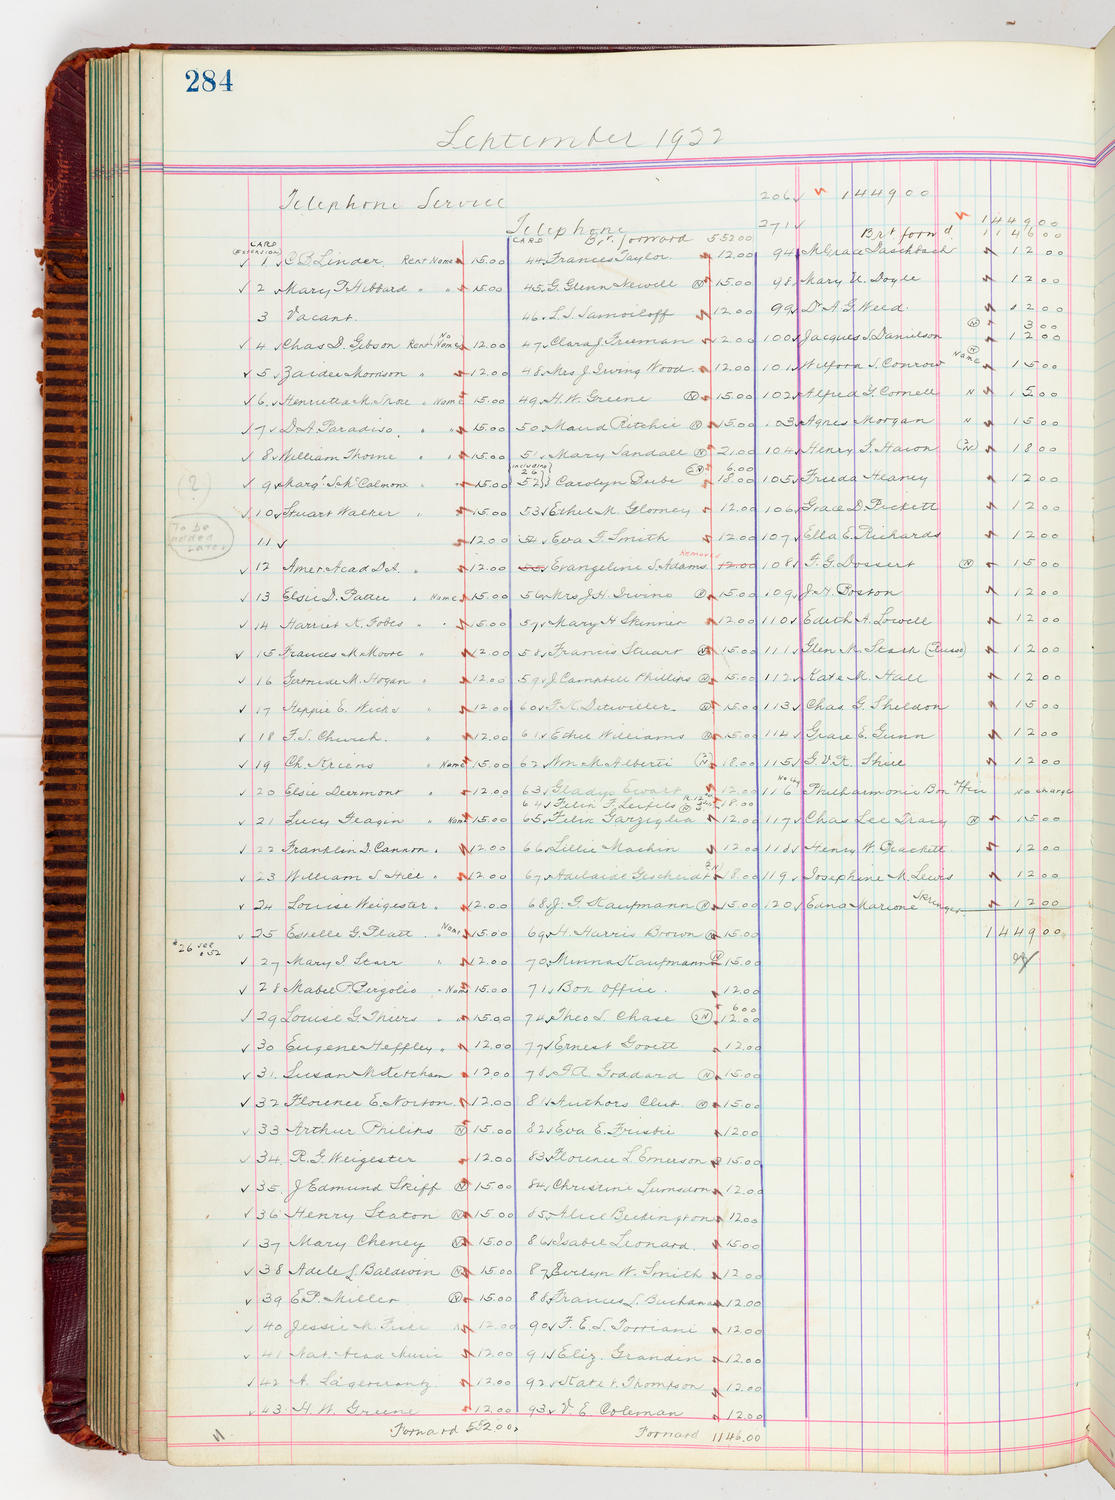 284
September 1922
Telephone Service
206 1449 00
271
CARD (EXTENSION)
1 C.B. Linder. Rent Name 15.00
2 Mary T. Hibbard " " 15.00
3 Vacant.
4 Chas D. Gibson Rent No Name 12.00
5 Zaidee Morrison " 12.00
6 Henrietta M. " Name 15.00
7 D.A. Paradiso. " " 15.00
8 William Thorne " " 15.00
9 Marg't McCalmon " 15.00
10 Stuart Walker " 15.00
(?)
To be added later
11 12.00
12 Amer. Acad D.A. " 12.00
13 Elsie D. Pattee " Name 15.00
14 Harriet K. Fobes " " 15.00
15 Frances M. Moore " 12.00
16 Gertrude M. Hogan " 12.00
17 Heppie E. Wicks " 12.00
18 F.S. Church. " 12.00
19 Ch. Kriens " Name 15.00
20 Elsie Deermont " 12.00
21 Lucy Feagin " Name 15.00
22 Franklin D. Cannon " 12.00
23 William S. Hill " 12.00
24 Louise Weigester " 12.00
25 Estelle G. Platt " Name 15.00
#26 see #52
27 Mary I. Starr " 12.00
28 Mabel P. Pergolio " Name 15.00
29 Louise G. Thiers " " 15.00
30 Eugene Heffley " 12.00
31 Susan M. Ketcham 12.00
32 Florence E. Norton. 12.00
33 Arthur Philips N 15.00
34 R.G. Weigester 12.00
35 J Edmund Skiff N 15.00
36 Henry Staton N 15.00
37 Mary Cheney N 15.00
38 Adele L. Baldwin N 15.00
39 E.P. Miller N 15.00
40 Jessie M. Fisk 12.00
41 Nat. Acad Music 12.00
42 A. Lagercrantz 12.00
43 H W Greene 12.00
Forward 552.00
Telephone
CARD Br't. forward 552.00
44 Frances Taylor 12.00
45 G. Glenn Newell N 15.00
46 L.S. Samoiloff 12.00
47 Clara J. Freeman 12.00
48 Mrs J. Irving Wood. 12.00
49 H. W. Greene N 15.00
50 Maud Ritchie N 15.00
51 Mary Sandall N 21.00
{including 26} 2N 6.00
52 Carolyn Beebe 18.00
53 Ethel M. Gloomey 12.00
54 Eva F. Smith 12.00
Removed
55 Evangeline S. Adams. 12.00
56 Mrs J.H. Irvine N 15.00
57 Mary H Skinner 12.00
58 Francis Stuart N 15.00
59 J Campbell Phillips N 15.00
60 F.K. Detwiller. N 15.00
61 Ethel Williams N 15.00
62 Wm M. Alberti 2N 18.00
63 Gladys Ewart 12.00
64 Felix F. Leifels 18.00
65 Felix Garziglia 12.00
66 Lillie Machin 12.00
67 Adelaide Gescheidt 2N 18.00
68 J. G. Kaufmann N 15.00
69 H. Harris Brown N 15.00
70 Minna Kaufmann N 15.00
71 Box office. 12.00
6 00
74 Theo S. Chase 2N 12.00
77 Ernest Govett 12.00
78 F.A. Goddard N 15.00
81 Authors Club. N 15.00
82 Eva E. Frisbie 12.00
83 Florence L. Emerson 15.00
84 Christine Lumsdon 12.00
85 Alice Beckington 12.00
86 Isabel Leonard. 15.00
87 Evelyn W. Smith 12.00
88 Frances L. Buchanan 12.00
90 F. E. S. Torriani 12.00
91 Eliz. Grandin 12.00
92 Kate V. Thompson 12.00
93 V E. Coleman 12.00
Forward 1146.00
1449.00
Br't forw'd 1146.00
94 M Grace Daschbach 12 00
98 Mary U. Doyle 12 00
99 Dr A G. Weed. 12 00
N 3 00
100 Jacques S. Danielson 12 00
101 Wilford S. Conrow N Name 15 00
102 Alfred Y. Cornell N 15 00
103 Agnes Morgan N 15 00
104 Henry G. Hawn 2N 18 00
105 Frieda Heaney 12 00
106 Grace D. Pickett 12 00
107 Ella E. Richards 12 00
108 F. G. Dossert N 15 00
109 J. H. Boston 12 00
110 Edith A. Lowell 12 00
111 Glen M. Stark (Russo) 12 00
112 Kate M. Hall 12 00
113 Chas G. Sheldon 15 00
114 Grace E. Gunn 12 00
115 G. V. R. Shiel 12 00
116 Philharmonic Box Office no charge
117 Chas Lee Tracy N 15 00
118 Henry W. Brackett. 12 00
119 Josephine M. Lewis 12 00
120 Edna Marione Springer 12 00
1449.00